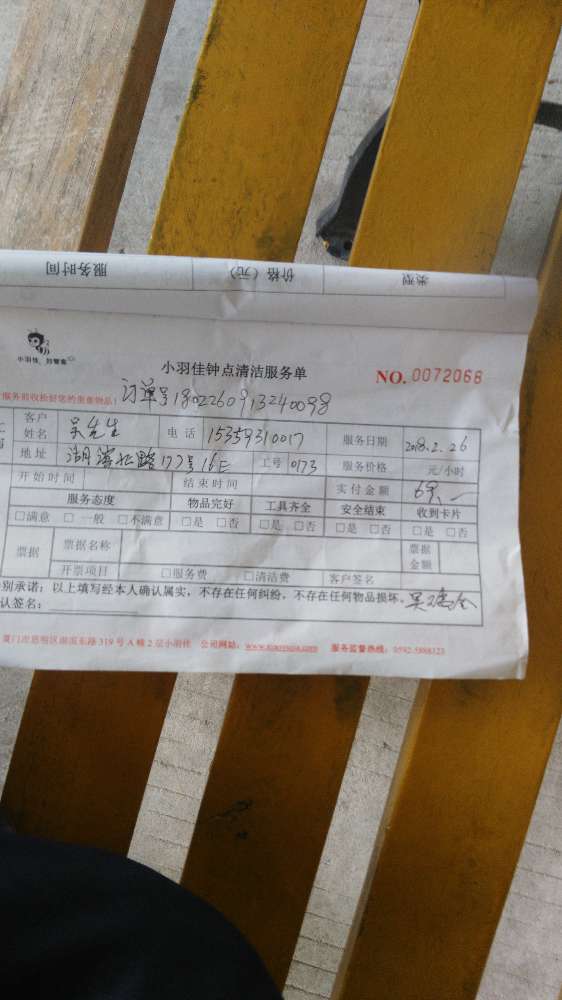 服务时间 价格（元） 类型
小羽佳
小羽佳钟点清洁服务单 NO. 0072068
服务前收检好您的贵重物品！ 订单号1802260913240098
客户姓名 吴先生 电话 15359310017 服务日期 2018.2.26
地址 湖滨北路177号16E 工号 0173 服务价格 元/小时
开始时间 结束时间 实付金额
服务态度 物品完好 工具齐全 安全结束 收到卡片
□满意 □一般 □不满意 □是 □否 □是 □否 □是 □否 □是 □否
票据 票据名称 票据金额
开票项目 □服务费 □清洁费 客户签名
别承诺：以上填写经本人确认属实，不存在任何纠纷，不存在任何物品损坏。
认签名：
厦门市思明区湖滨东路319号A幢2层小羽佳 公司网站： 服务监督热线：0592-5888323